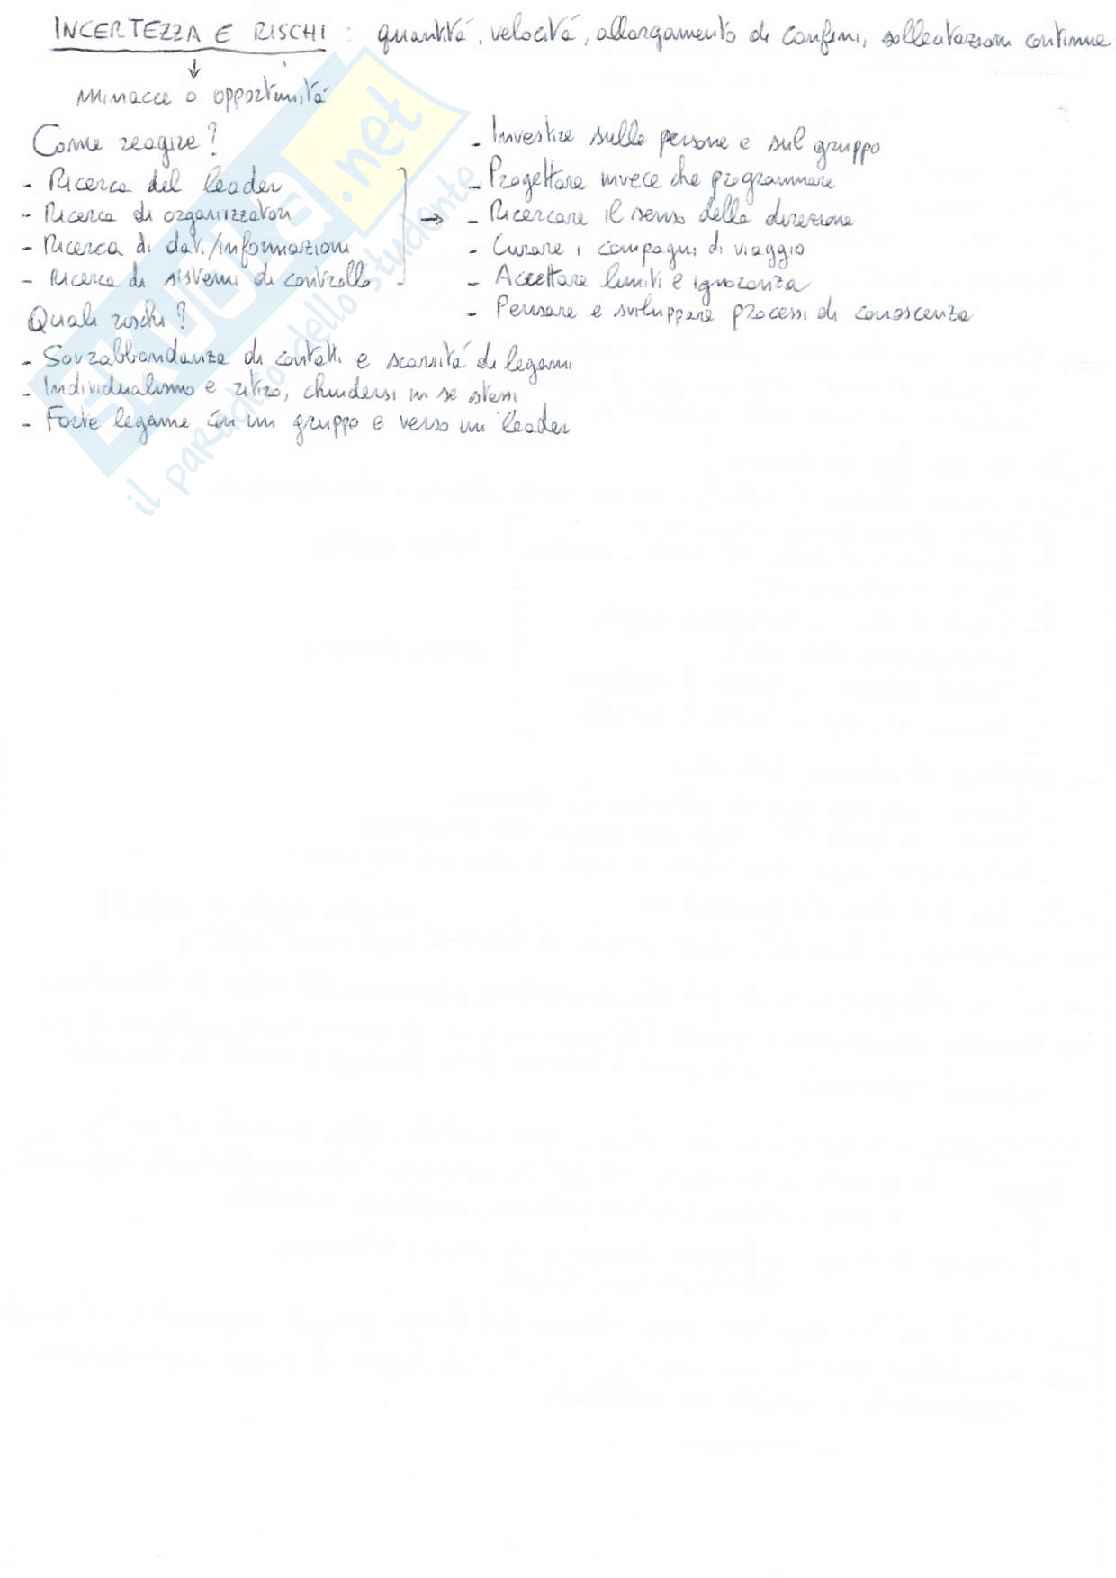 INCERTEZZA E RISCHI : quantità, velocità, allargamento di confini, sollecitazioni continue
↓
Minacce o opportunità
Come reagire?
- Ricerca del leader
- Ricerca di organizzatori
- Ricerca di dati/informazioni
- Ricerca di sistemi di controllo
→
- Investire sulle persone e sul gruppo
- Progettare invece che programmare
- Ricercare il senso della direzione
- Curare i compagni di viaggio
- Accettare limiti e ignoranza
- Pensare e sviluppare processi di conoscenza
Quali rischi?
- Sovrabbondanza di contatti e scarsità di legami
- Individualismo e ritiro, chiudersi in se stessi
- Forte legame in un gruppo e verso un leader
SKUOLA.net
il paradiso dello studente